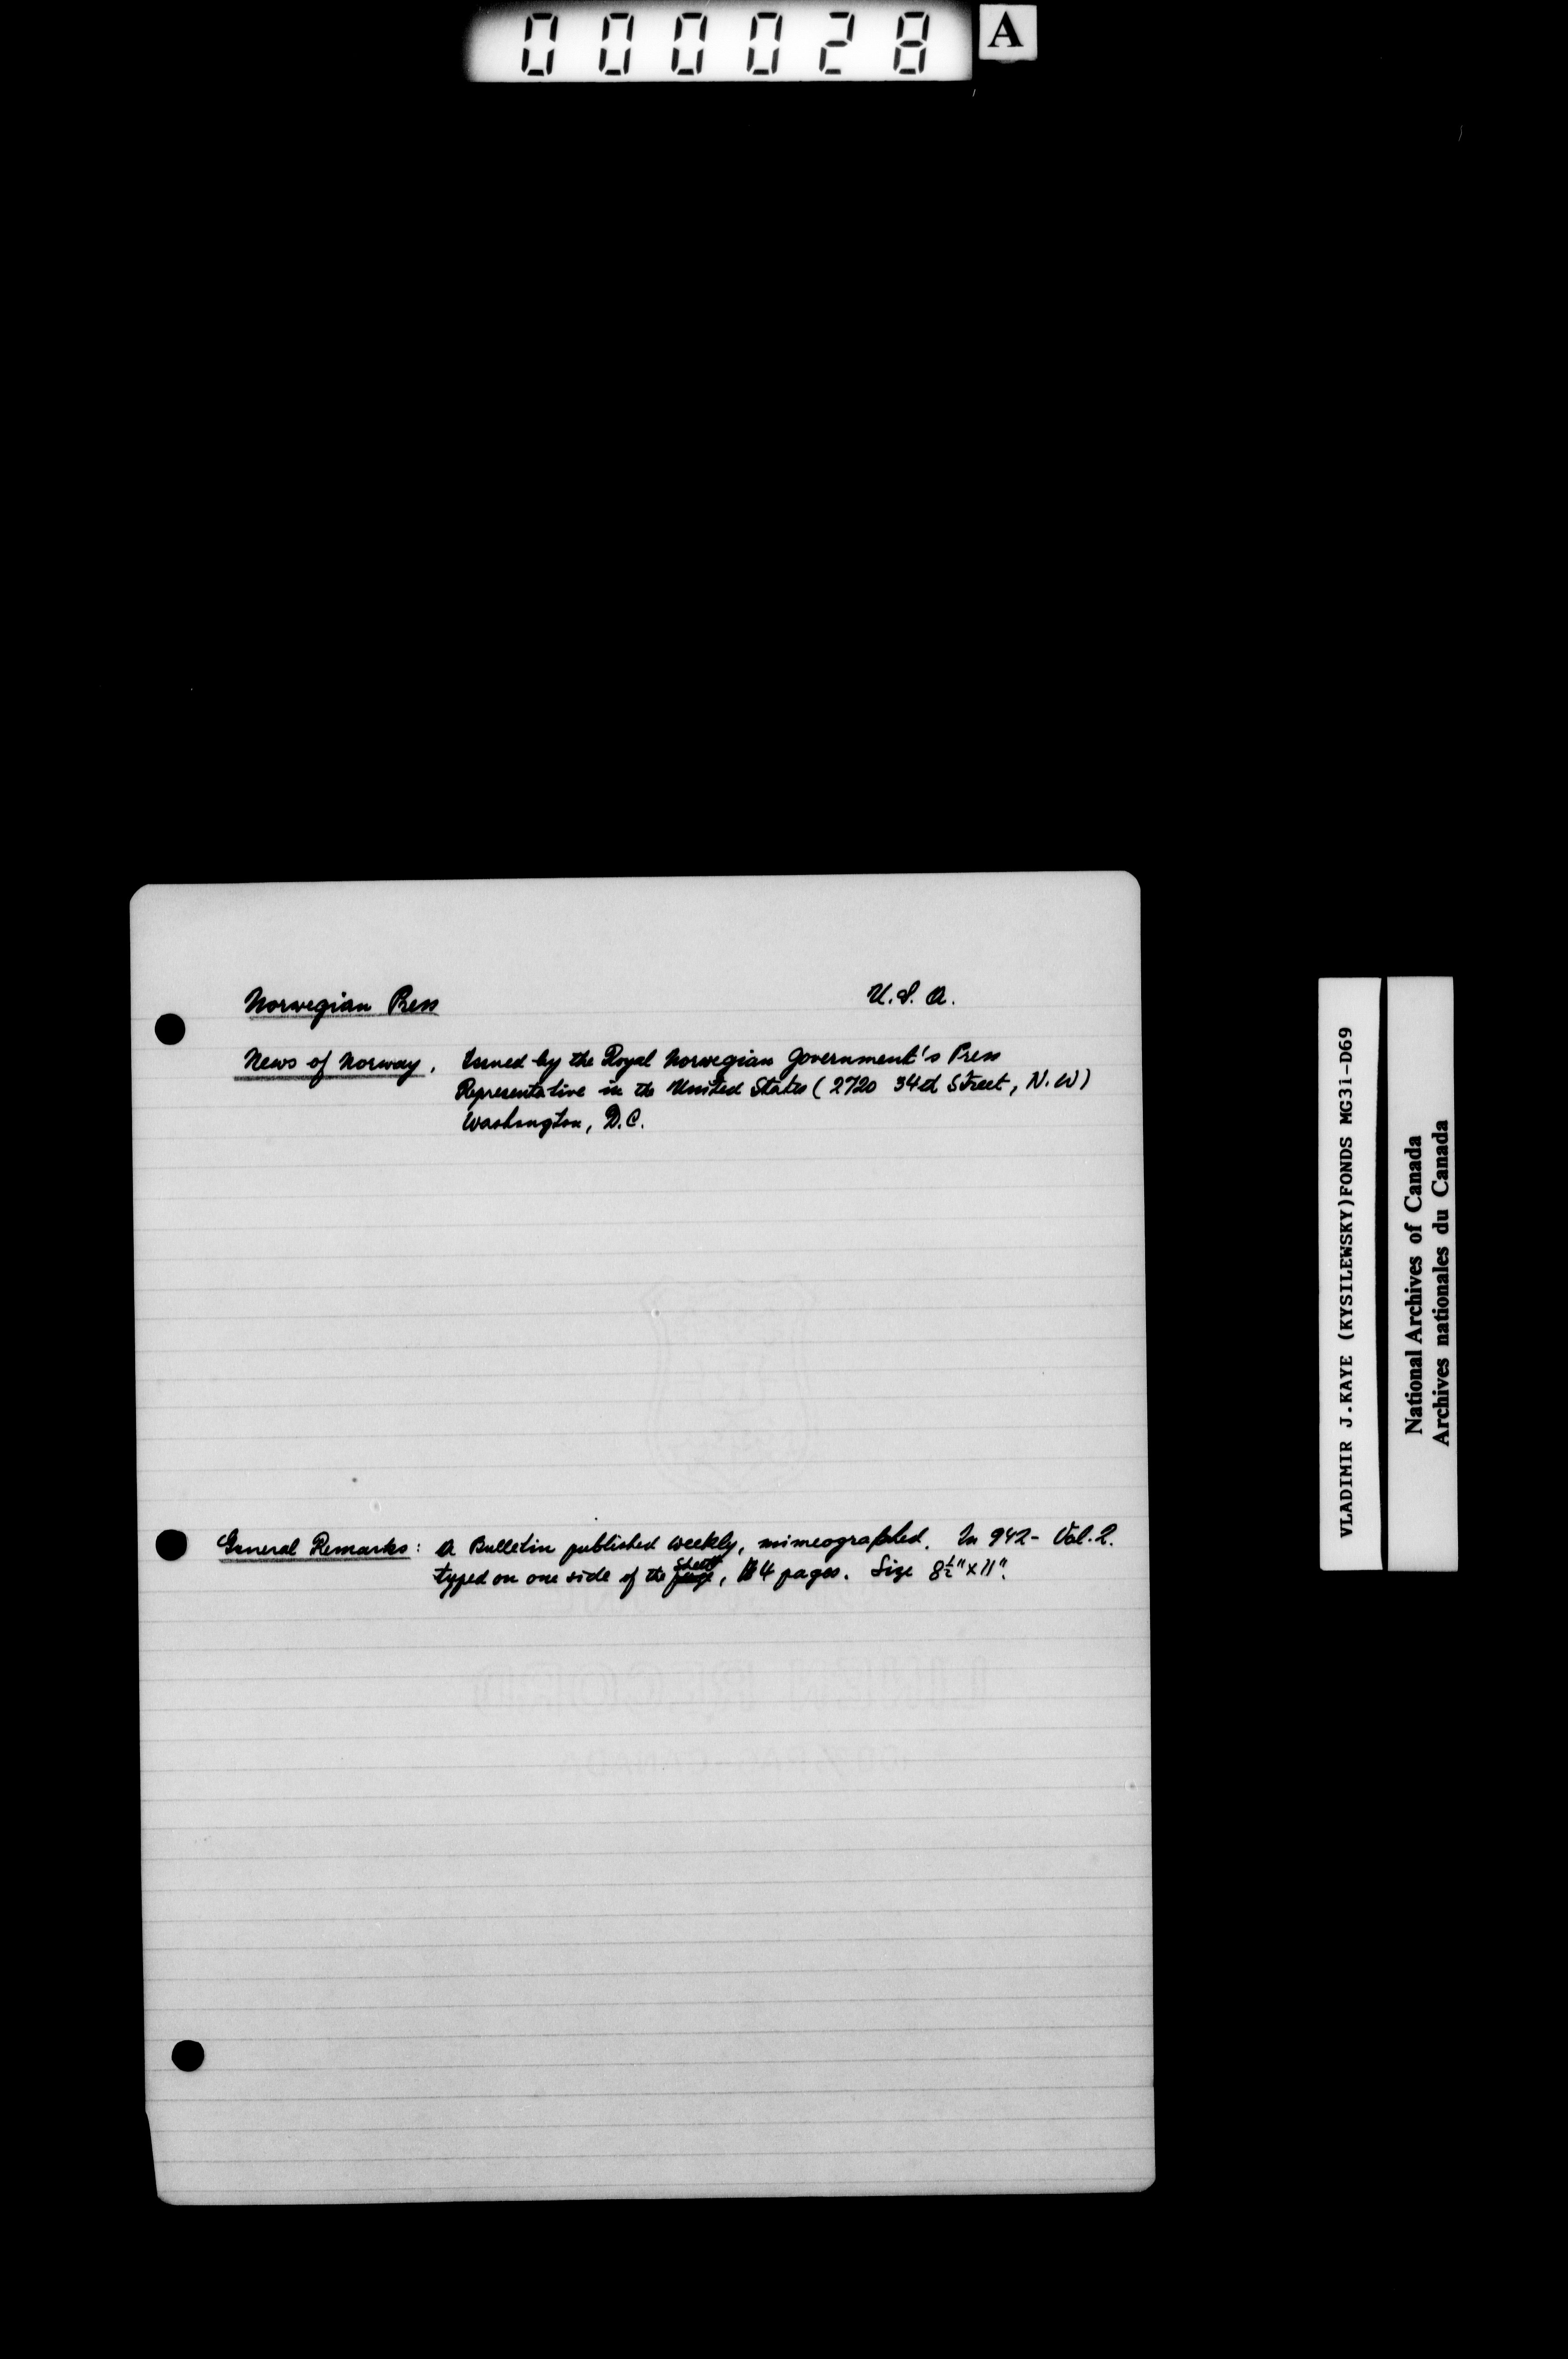 000028 A
Norwegian Press U.S.A.
News of Norway, Issued by the Royal Norwegian Government's Press
Representative in the United States (2720 34d Street, N.W)
Washington, D.C.
General Remarks: A Bulletin published weekly, mimeographed. In 942- Vol. 2.
typed on one side of the sheet, 4 pages. Size 8½"x11".
VLADIMIR J.KAYE (KYSILEWSKY)FONDS MG31-D69
National Archives of Canada
Archives nationales du Canada